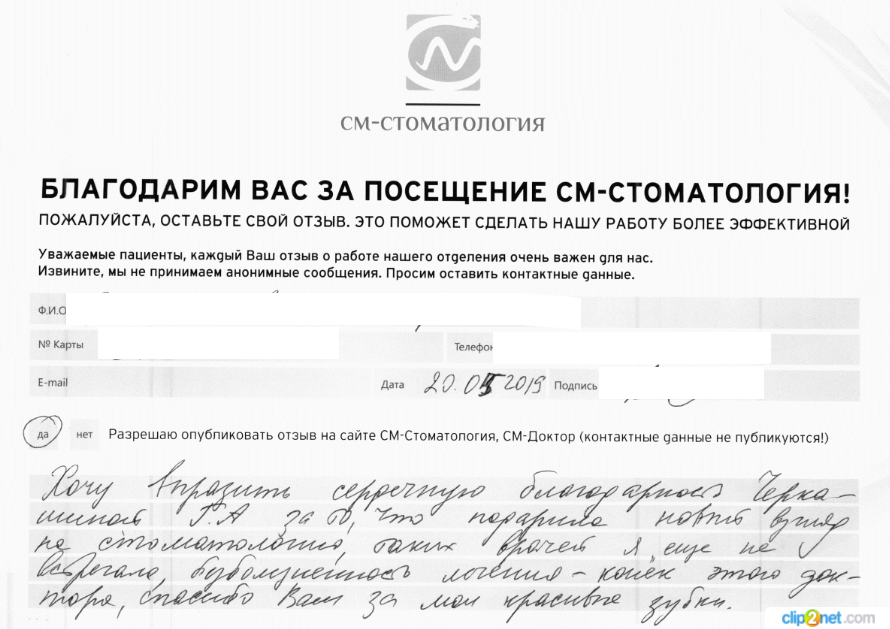 СМ-СТОМАТОЛОГИЯ
БЛАГОДАРИМ ВАС ЗА ПОСЕЩЕНИЕ СМ-СТОМАТОЛОГИЯ!
ПОЖАЛУЙСТА, ОСТАВЬТЕ СВОЙ ОТЗЫВ. ЭТО ПОМОЖЕТ СДЕЛАТЬ НАШУ РАБОТУ БОЛЕЕ ЭФФЕКТИВНОЙ
Уважаемые пациенты, каждый Ваш отзыв о работе нашего отделения очень важен для нас.
Извините, мы не принимаем анонимные сообщения. Просим оставить контактные данные.
Ф.И.О
№ Карты Телефон
E-mail Дата 20.05 2019 Подпись
да нет Разрешаю опубликовать отзыв на сайте СМ-Стоматология, СМ-Доктор (контактные данные не публикуются!)
Хочу выразить сердечную благодарность Черка-
шиной Г.А за то, что подарила новый взгляд
на стоматологию, таких врачей я еще не
встречала, безболезненность лечения - конек этого док-
тора, спасибо Вам за мои красивые зубки.
clip2net.com